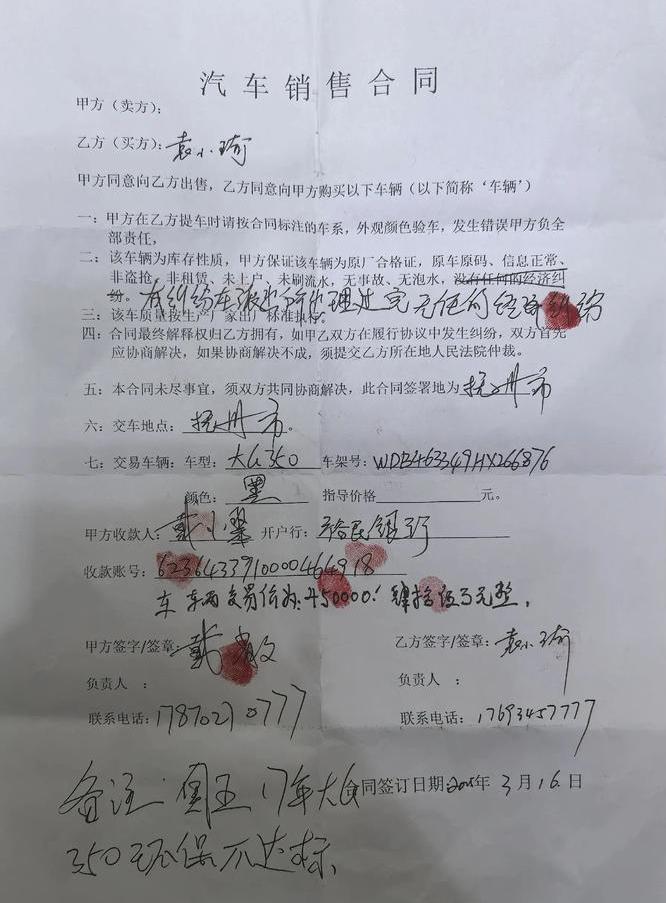 汽车销售合同
甲方（卖方）：
乙方（买方）：袁小琦
甲方同意向乙方出售，乙方同意向甲方购买以下车辆（以下简称‘车辆’）
一：甲方在乙方提车时请按合同标注的车系，外观颜色验车，发生错误甲方负全
部责任，
二：该车辆为库存性质，甲方保证该车辆为原厂合格证，原车原码、信息正常、
非盗抢、非租赁、未上户、未刷流水，无事故、无泡水，没有任何的经济纠
纷。有纠纷车 处理 完无任何经济纠纷
三：该车质量按生产厂家出厂标准执行。
四：合同最终解释权归乙方拥有，如甲乙双方在履行协议中发生纠纷，双方首先
应协商解决，如果协商解决不成，须提交乙方所在地人民法院仲裁。
五：本合同未尽事宜，须双方共同协商解决，此合同签署地为抚州市
六：交车地点：抚州市。
七：交易车辆：车型：大G350 车架号：WDB463349HX266876
颜色：黑 指导价格 元。
甲方收款人：戴小翠 开户行：裕民银行
收款账号：6236433910000464918
车 车辆交易价为：450000！肆拾伍万元整，
甲方签字/签章：戴 乙方签字/签章：袁小琦
负责人 ： 负责人 ：
联系电话：17870270777 联系电话：17693457777
备注：国五17年大G 合同签订日期：2025年3月16日
350环保不达标、